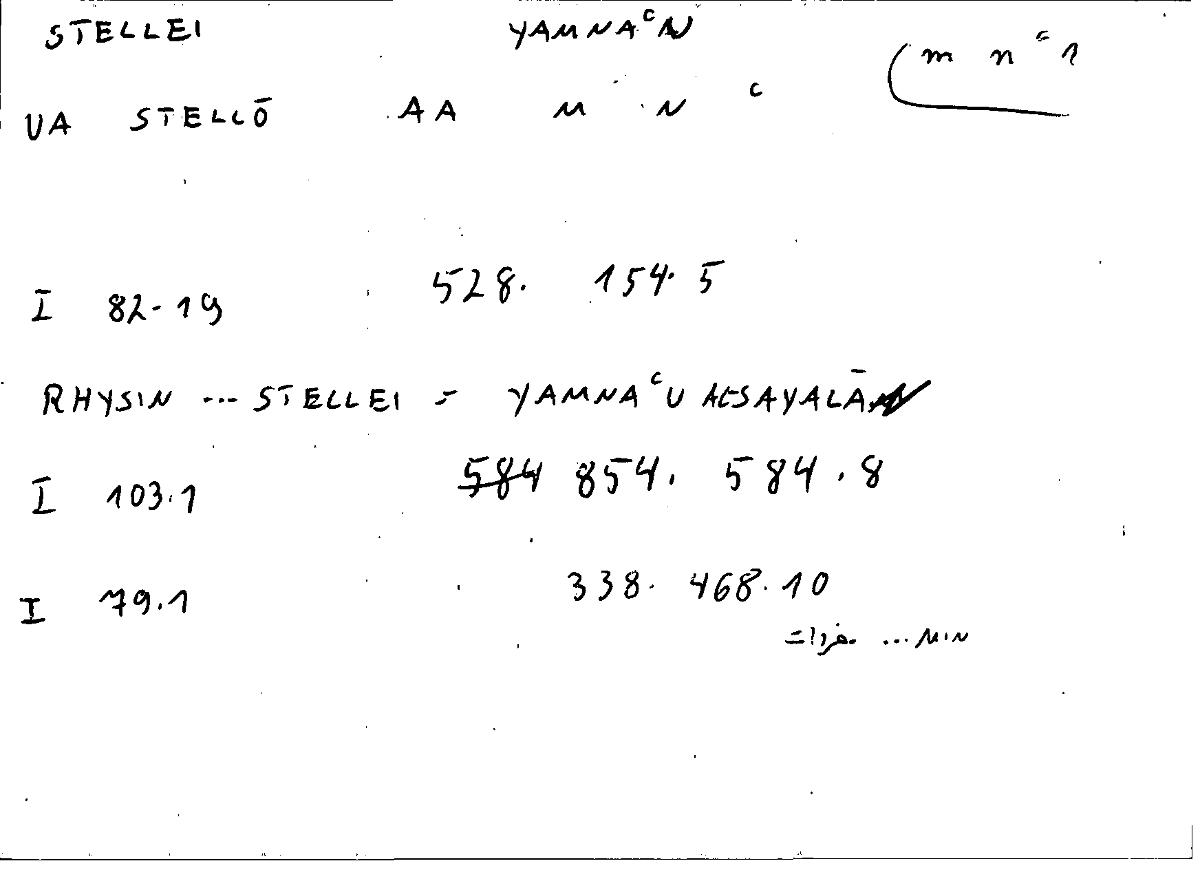 STELLEI YAMNAᶜN
m nᶜ 1
VA STELLŌ AA M N ᶜ
I 82-19 528. 154. 5
RHYSIN ... STELLEI = YAMNAᶜU ALSAYALĀN
I 103.1 584 854. 584.8
I 79.1 338. 468.10
مفردات ... MIN